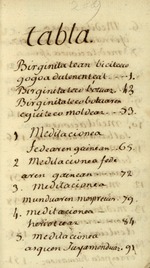 tabla.
Birginitatean biciteco
gogoa dutenentçat 1.
Birginitateco botuaz. 43
Birginitateco botuaren
eguiteco moldea 53.
1 Meditacionea
Fedearen gainean. 65.
2 Meditacionea fede
aren gaenean 72
3. Meditacionea
munduaren mesprecioan. 79.
4. meditacionea
heriotceaz 84
5 meditacionea
arguien Juyamenduaz. 91